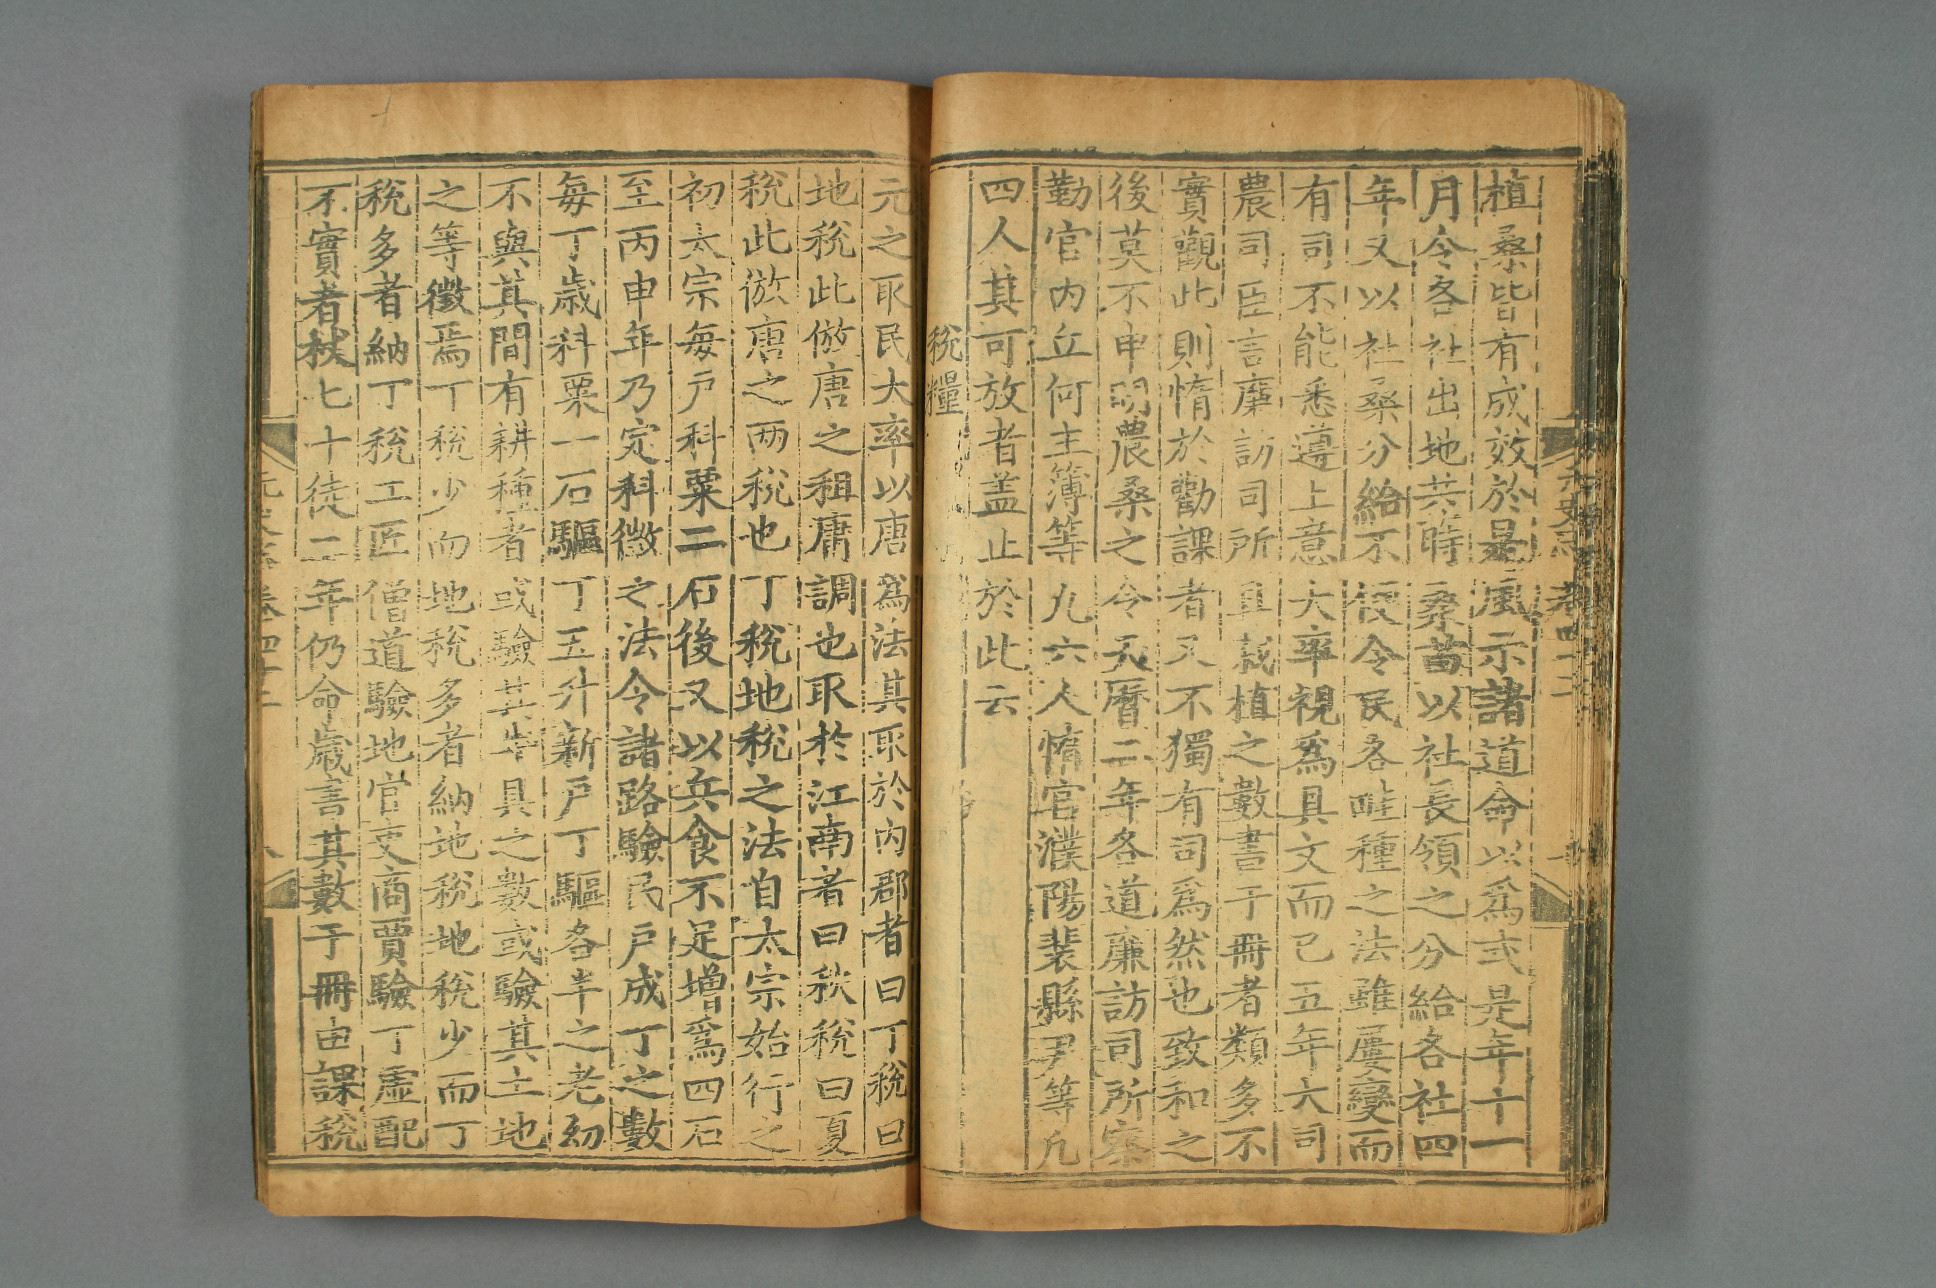 植桑皆有成效於是風示諸道命以爲式是年十一
月令各社出地共時桑苗以社長領之分給各社四
年又以社桑分給不便令民各畦種之法雖屢變而
有司不能悉遵上意大率視爲具文而已五年大司
農司臣言廉訪司所具栽植之數書于冊者類多不
實觀此則惰於勸課者又不獨有司爲然也致和之
後莫不申明農桑之令天曆二年各道廉訪司所察
勤官內丘何主簿等九六人惰官濮陽裴縣尹等凡
四人其可放者盖止於此云
稅糧
元之取民大率以唐爲法其取於內郡者曰丁稅曰
地稅此倣唐之租庸調也取於江南者曰秋稅曰夏
稅此倣唐之两稅也丁稅地稅之法自太宗始行之
初太宗每戶科粟二石後又以兵食不足增爲四石
至丙申年乃定科徵之法令諸路驗民戶成丁之數
每丁歲科粟一石驅丁五升新戶丁驅各半之老幼
不與其間有耕種者或驗其牛具之數或驗其土地
之等徵焉丁稅少而地稅多者納地稅地稅少而丁
稅多者納丁稅工匠僧道驗地官吏商賈驗丁虛配
不實者杖七十徒二年仍命歲書其數于冊由課稅
元史志卷四十二